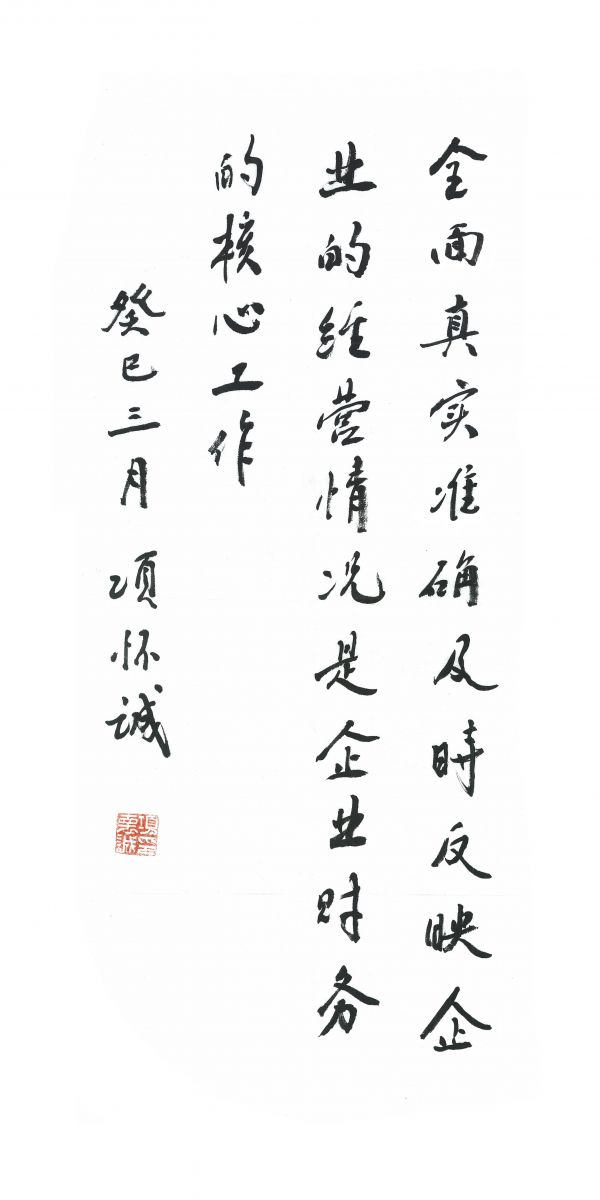 全面真实准确及時反映企
业的经营情况是企业财务
的核心工作
癸巳三月 项怀诚